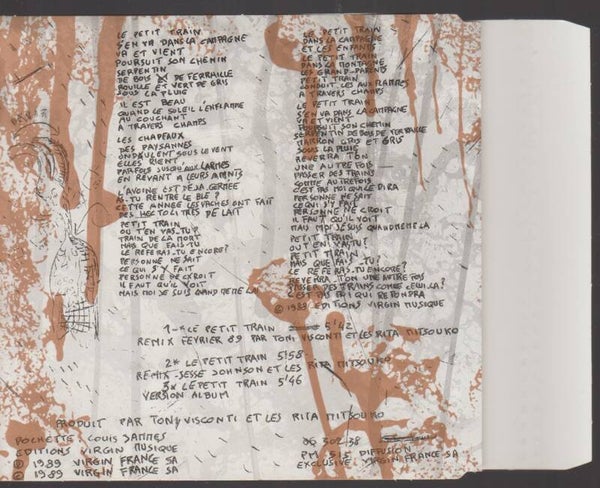 LE PETIT TRAIN
S'EN VA DANS LA CAMPAGNE
VA ET VIENT
POURSUIT SON CHEMIN
SERPENTIN
DE BOIS ET DE FERRAILLE
ROUILLE ET VERT DE GRIS
SOUS LA PLUIE
IL EST BEAU
QUAND LE SOLEIL L'ENFLAMME
AU COUCHANT
A TRAVERS CHAMPS
LES CHAPEAUX
DES PAYSANNES
ONDULENT SOUS LE VENT
ELLES RIENT
PARFOIS JUSQU'AUX LARMES
EN REVANT A LEURS AMANTS
L'AVOINE EST DEJA GERMEE
AS-TU RENTRE LE BLE ?
CETTE ANNEE LES VACHES ONT FAIT
DES HECTOLITRES DE LAIT
PETIT TRAIN
OU T'EN VAS-TU
TRAIN DE LA MORT
MAIS QUE FAIS-TU
LE REFERAS-TU ENCORE ?
PERSONNE NE SAIT
CE QUI S'Y FAIT
PERSONNE NE CROIT
IL FAUT QU'IL VOIT
MAIS MOI JE SUIS QUAND MEME LA
LE PETIT TRAIN
DANS LA CAMPAGNE
ET LES ENFANTS
LE PETIT TRAIN
DANS LA MONTAGNE
LES GRAND-PARENTS
PETIT TRAIN
CONDUIT LES AUX FLAMMES
A TRAVERS CHAMPS
LE PETIT TRAIN
S'EN VA DANS LA CAMPAGNE
VA ET VIENT
POURSUIT SON CHEMIN
SERPENTIN DE BOIS DE FERRAILLE
MARRON GRIS ET GRIS
SOUS LA PLUIE
REVERRA TON
UNE AUTRE FOIS
PASSER DES TRAINS
COMME AUTREFOIS
C'EST PAS MOI QUI LE DIRA
PERSONNE NE SAIT
CE QUI S'Y FAIT
PERSONNE NE CROIT
IL FAUT QU'IL VOIT
MAIS MOI JE SUIS QUAND MEME LA
PETIT TRAIN
OU T'EN VA, TU ?
PETIT TRAIN
MAIS QUE FAIS-TU ?
LE REFERAS-TU ENCORE ?
REVERRA TON UNE AUTRE FOIS
PASSER DES TRAINS COMME CEUX LA ?
C'EST PAS MOI QUI REPONDRA
© 1989 EDITIONS VIRGIN MUSIQUE
1-* LE PETIT TRAIN 5'42
REMIX FEVRIER 89 PAR TONI VISCONTI ET LES RITA MITSOUKO
2* LE PETIT TRAIN 5'58
REMIX-JESSE JOHNSON ET LES RITA MITSOUKO
3* LE PETIT TRAIN 5'46
VERSION ALBUM
PRODUIT PAR TONY VISCONTI ET LES RITA MITSOUKO
POCHETTE: LOUIS JAMMES
EDITIONS VIRGIN MUSIQUE
© 1989 VIRGIN FRANCE SA
℗ 1989 VIRGIN FRANCE SA
PM 515 DIFFUSION
EXCLUSIVE VIRGIN FRANCE SA